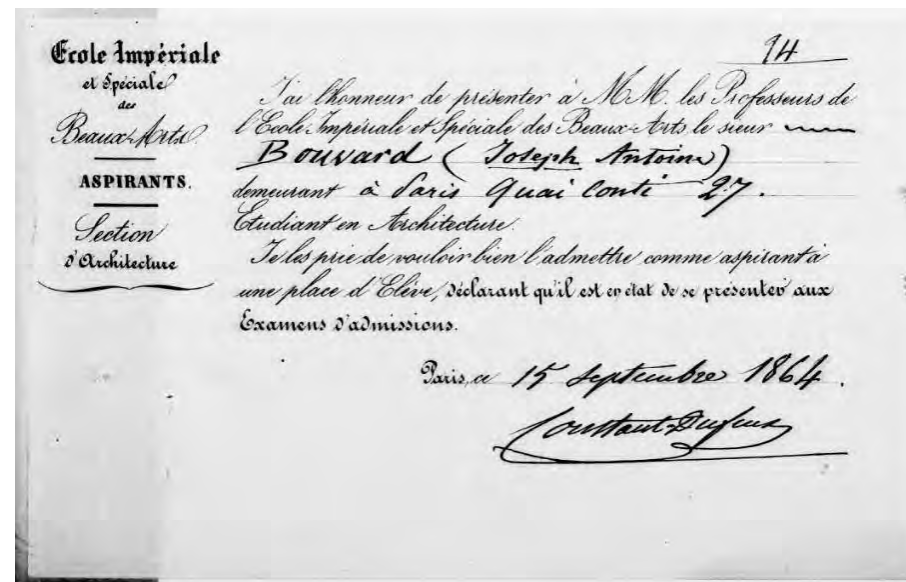 Ecole Impériale
et Spéciale
des
Beaux-Arts.
ASPIRANTS.
Section
d'Architecture
94
J'ai l'honneur de présenter à M.M. les Professeurs de
l'Ecole Impériale et Spéciale des Beaux-Arts, le sieur
Bouvard (Joseph Antoine)
demeurant à Paris Quai Conti 27.
Etudiant en Architecture.
Je les prie de vouloir bien l'admettre comme aspirant à
une place d'Elève, déclarant qu'il est en état de se présenter aux
Examens d'admissions.
Paris, ce 15 Septembre 1864.
Constant-Dufeux